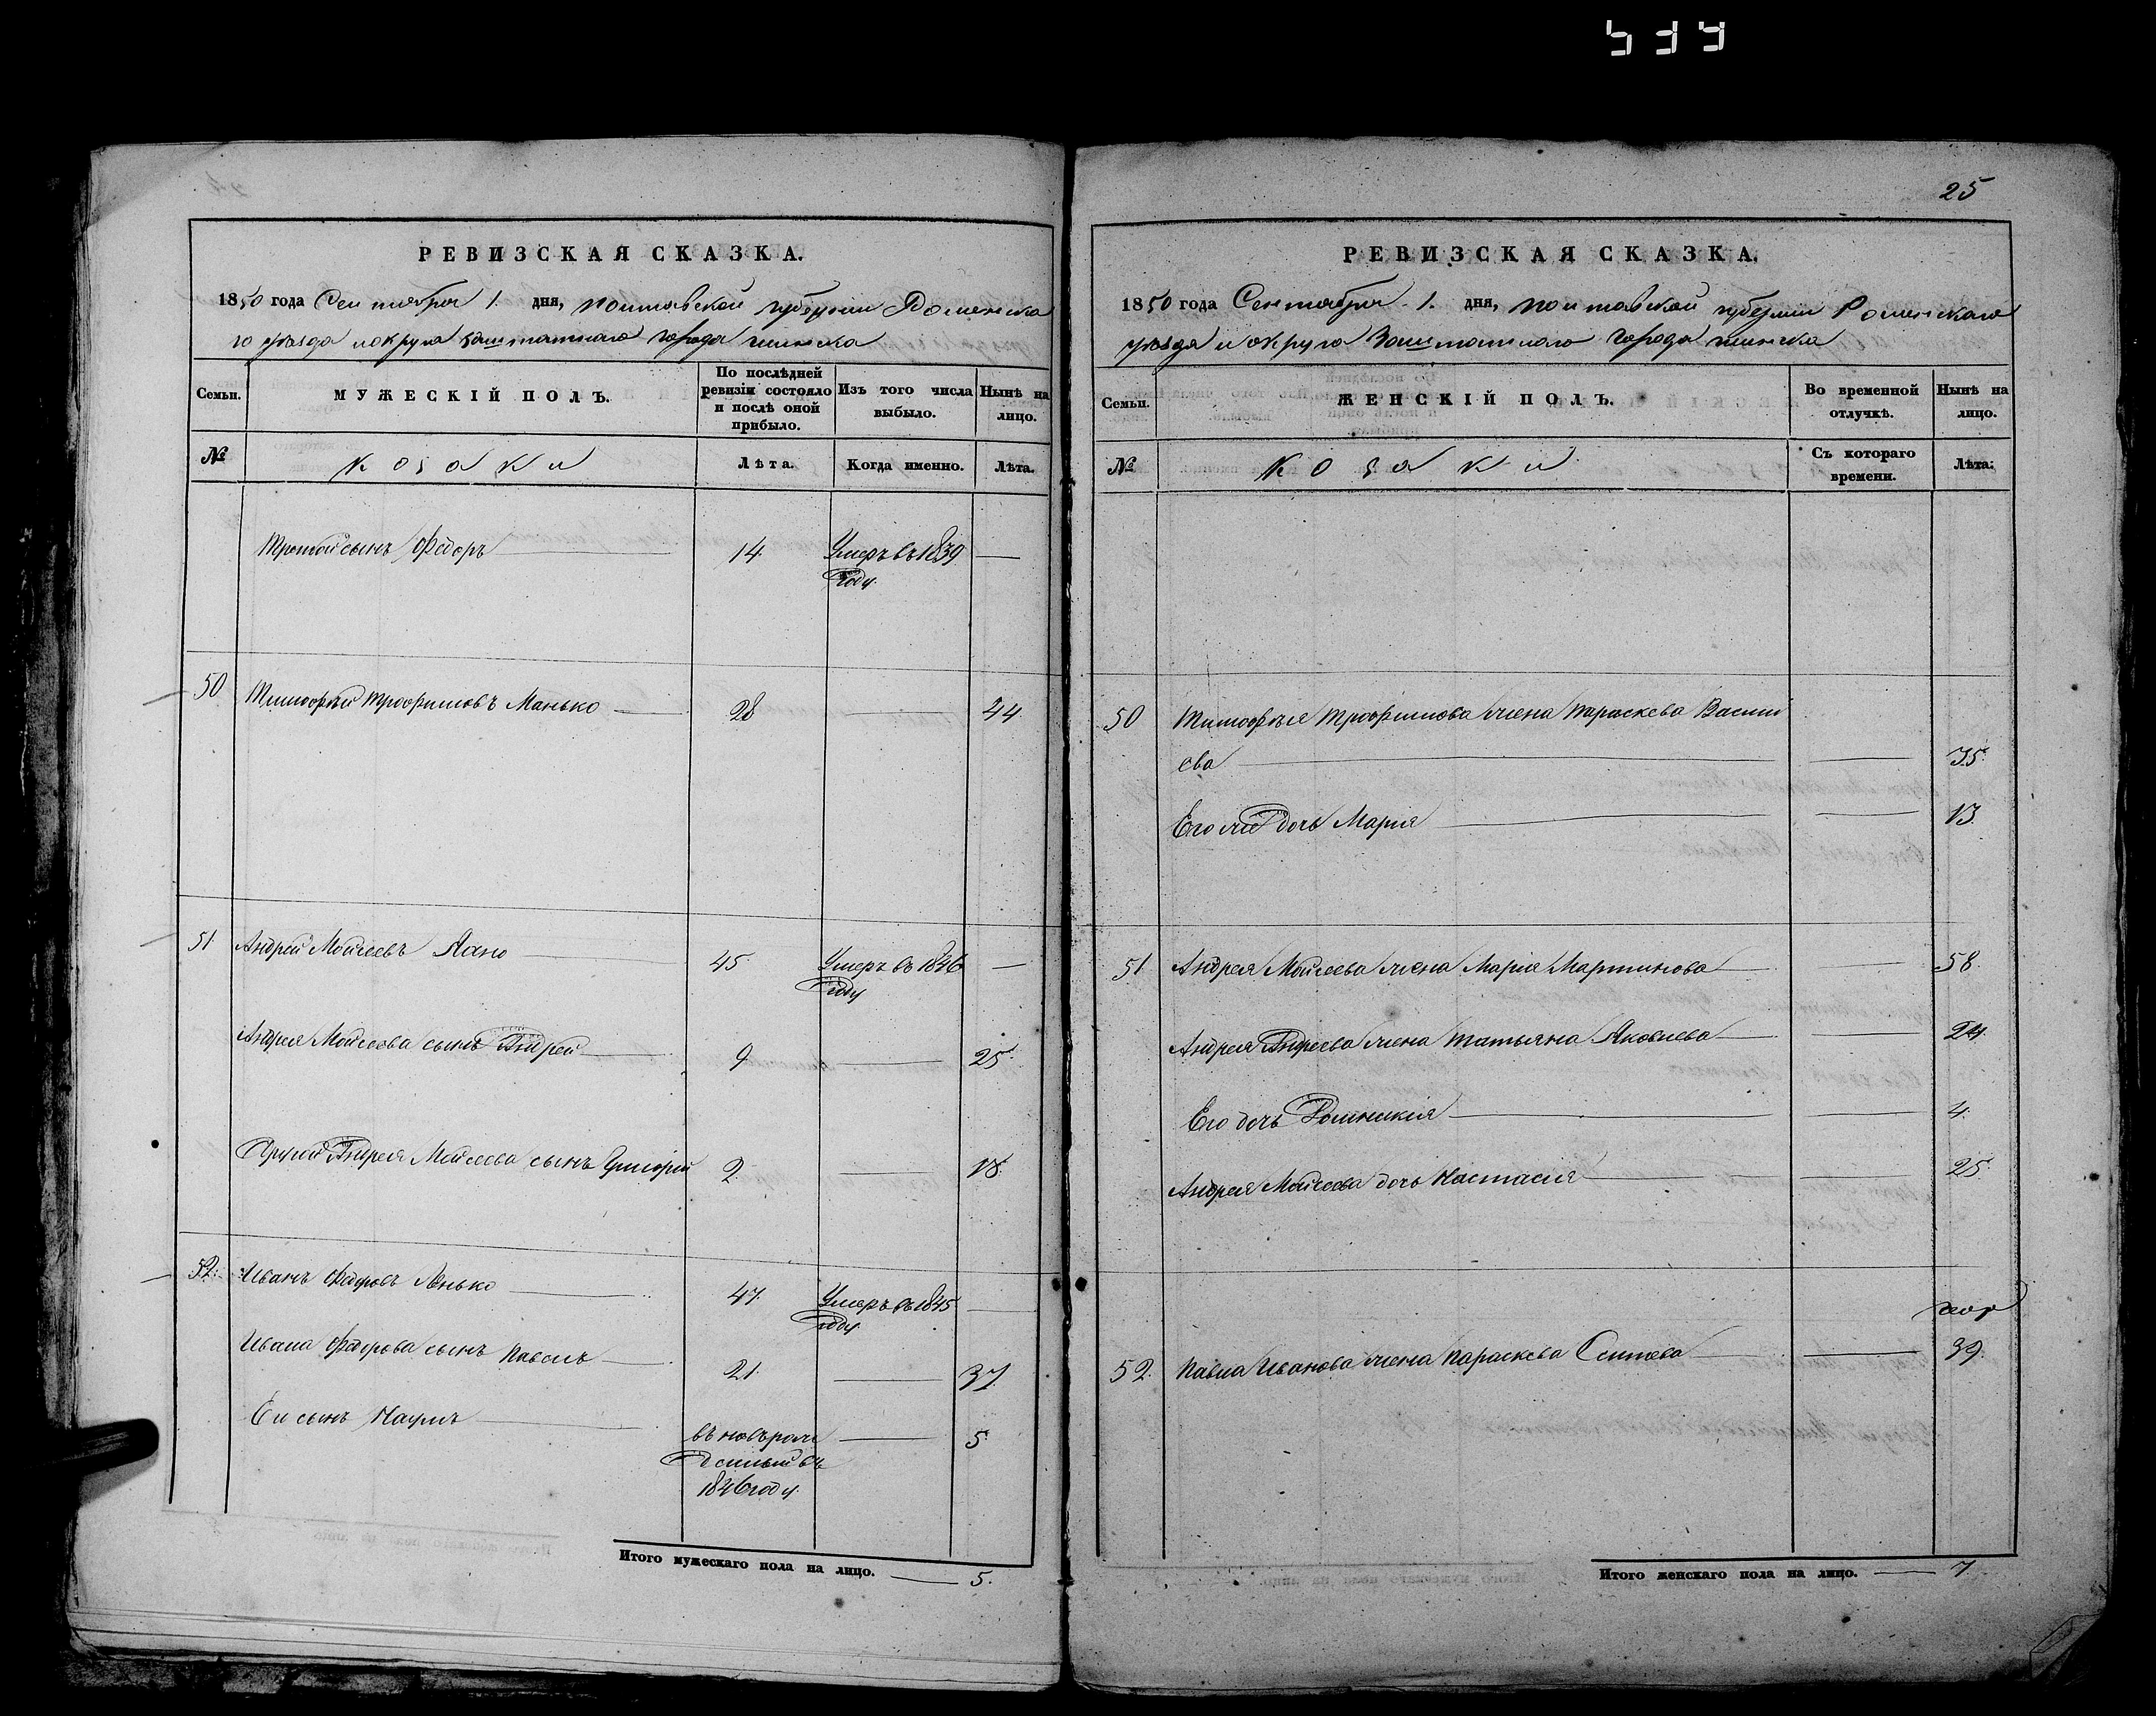 25
РЕВИЗСКАЯ СКАЗКА.
1850 года Сентября 1. дня, полтавской губернии Роменска
го уѣзда и округа заштатнаго города глинска
Семьи.
МУЖЕСКІЙ ПОЛЪ.
По послѣдней
ревизіи состояло
и послѣ оной
прибыло.
Изъ того числа
выбыло.
Нынѣ на
лицо.
№
Козаки
Лѣта.
Когда именно.
Лѣта.
Третій сынъ Федоръ 14. Умеръ въ 1839
году.
50 Тимофѣй Трофимовъ Манько 28 44
51. Андрей Моисеевъ 45. Умеръ въ 1846
году
Андрея Моисеева сынъ Андрей 9. 25.
Другой Андрея Моисеева сынъ Григорій 2. 18.
52. Иванъ Федоровъ 47. Умеръ въ 1845
году.
Ивана Федорова сынъ Павелъ 21. 37.
Его сынъ Наумъ
въ новѣ рож
денный въ
1846 году.
5
Итого мужескаго пола на лицо. 5.
РЕВИЗСКАЯ СКАЗКА.
1850 года Сентября 1. дня, полтавской губерніи Роменскаго
уѣзда и округа Заштатнаго города глинска
Семьи.
ЖЕНСКІЙ ПОЛЪ.
Во временной
отлучкѣ.
Нынѣ на
лицо.
№
Козаки
Съ котораго
времени.
Лѣта.
50 Тимофѣя Трофимова жена Параскева Васили
ева 35.
Его же дочь Марія 13.
51 Андрея Моисеева жена Марія Мартинова 58.
Андрея Андреева жена Татьяна Яковлева 24.
Его дочь 4.
Андрея Моисеева дочь Настасія 25.
52. Павла Иванова жена Параскева 39.
Итого женскаго пола на лицо. 7